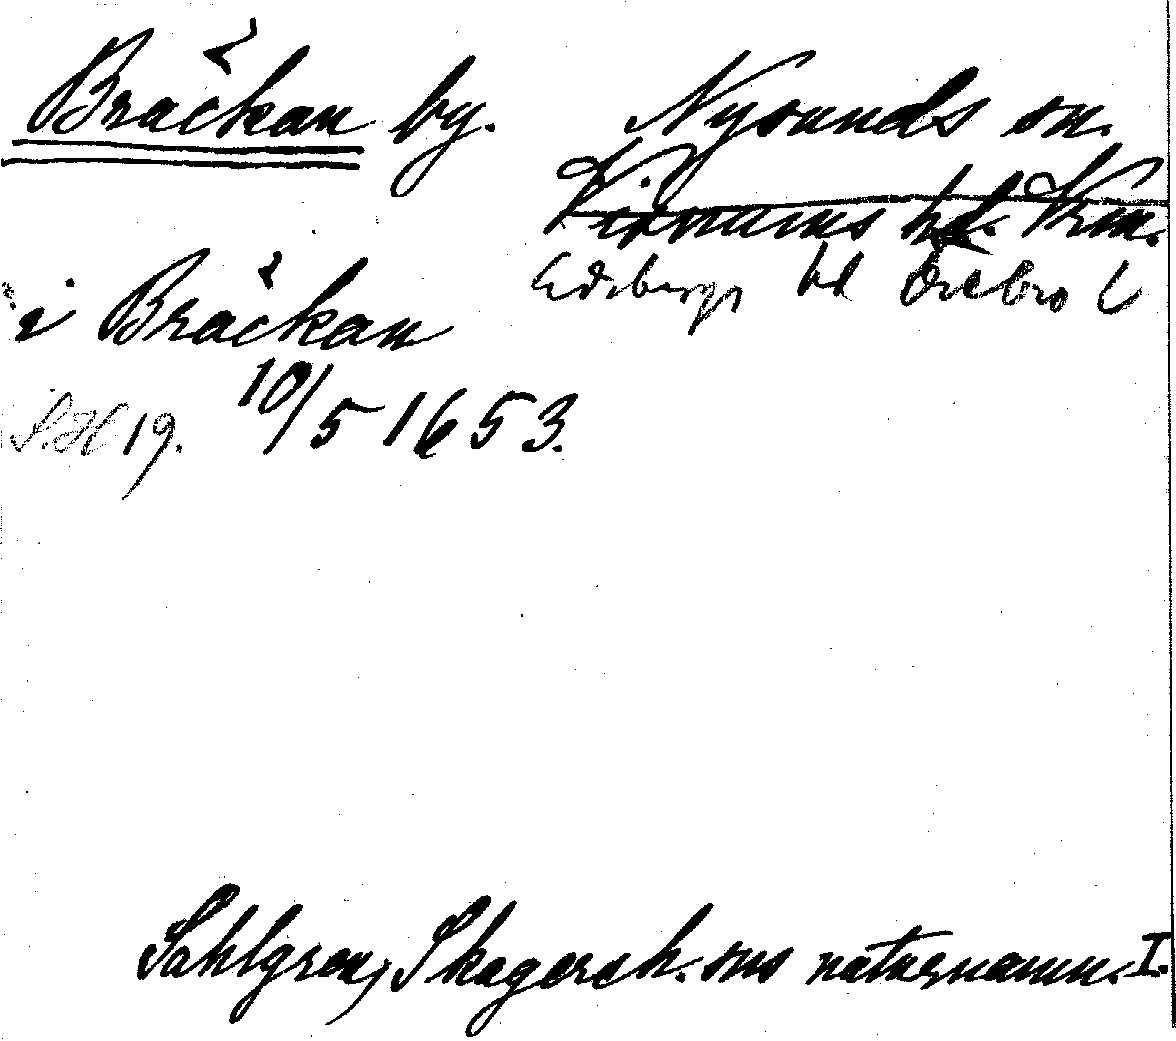 Bräckan by. Nysunds sn.
Visnums hd. Vrm.
Edsbergs hd Örebro L
i Bräckan
S.H 19. 10/5 1653.
Sahlgren, Skagersh. sns naturnamn. I.